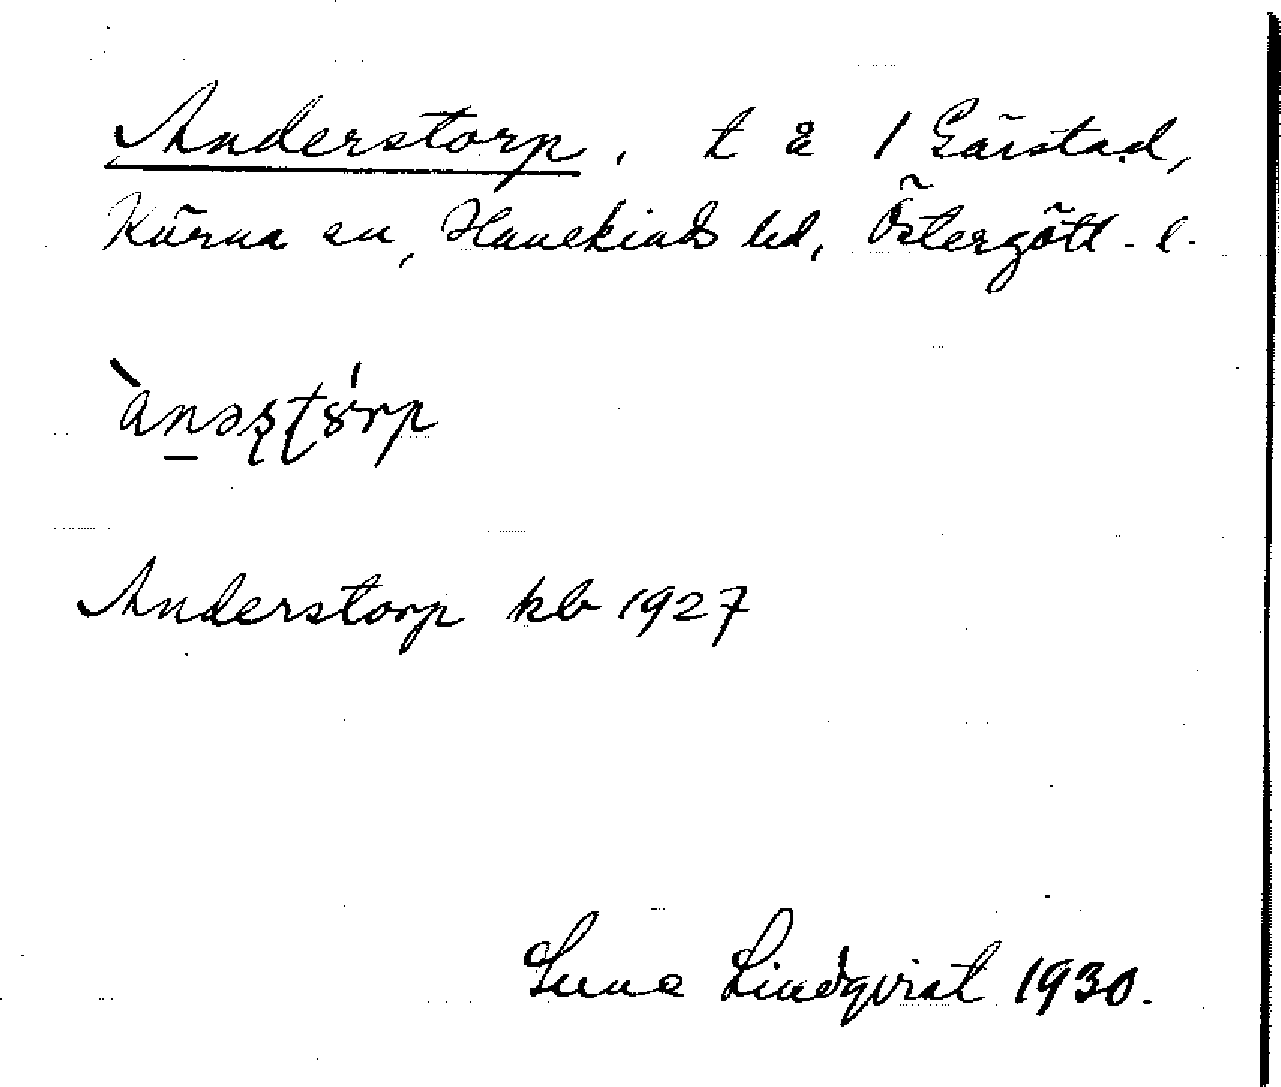 Anderstorp, t å 1 Gärstad,
Kärna sn, Hanekinds hd, Östergötl. l.
ànəʂʈórp
Anderstorp kb 1927
Sune Lindqvist 1930.